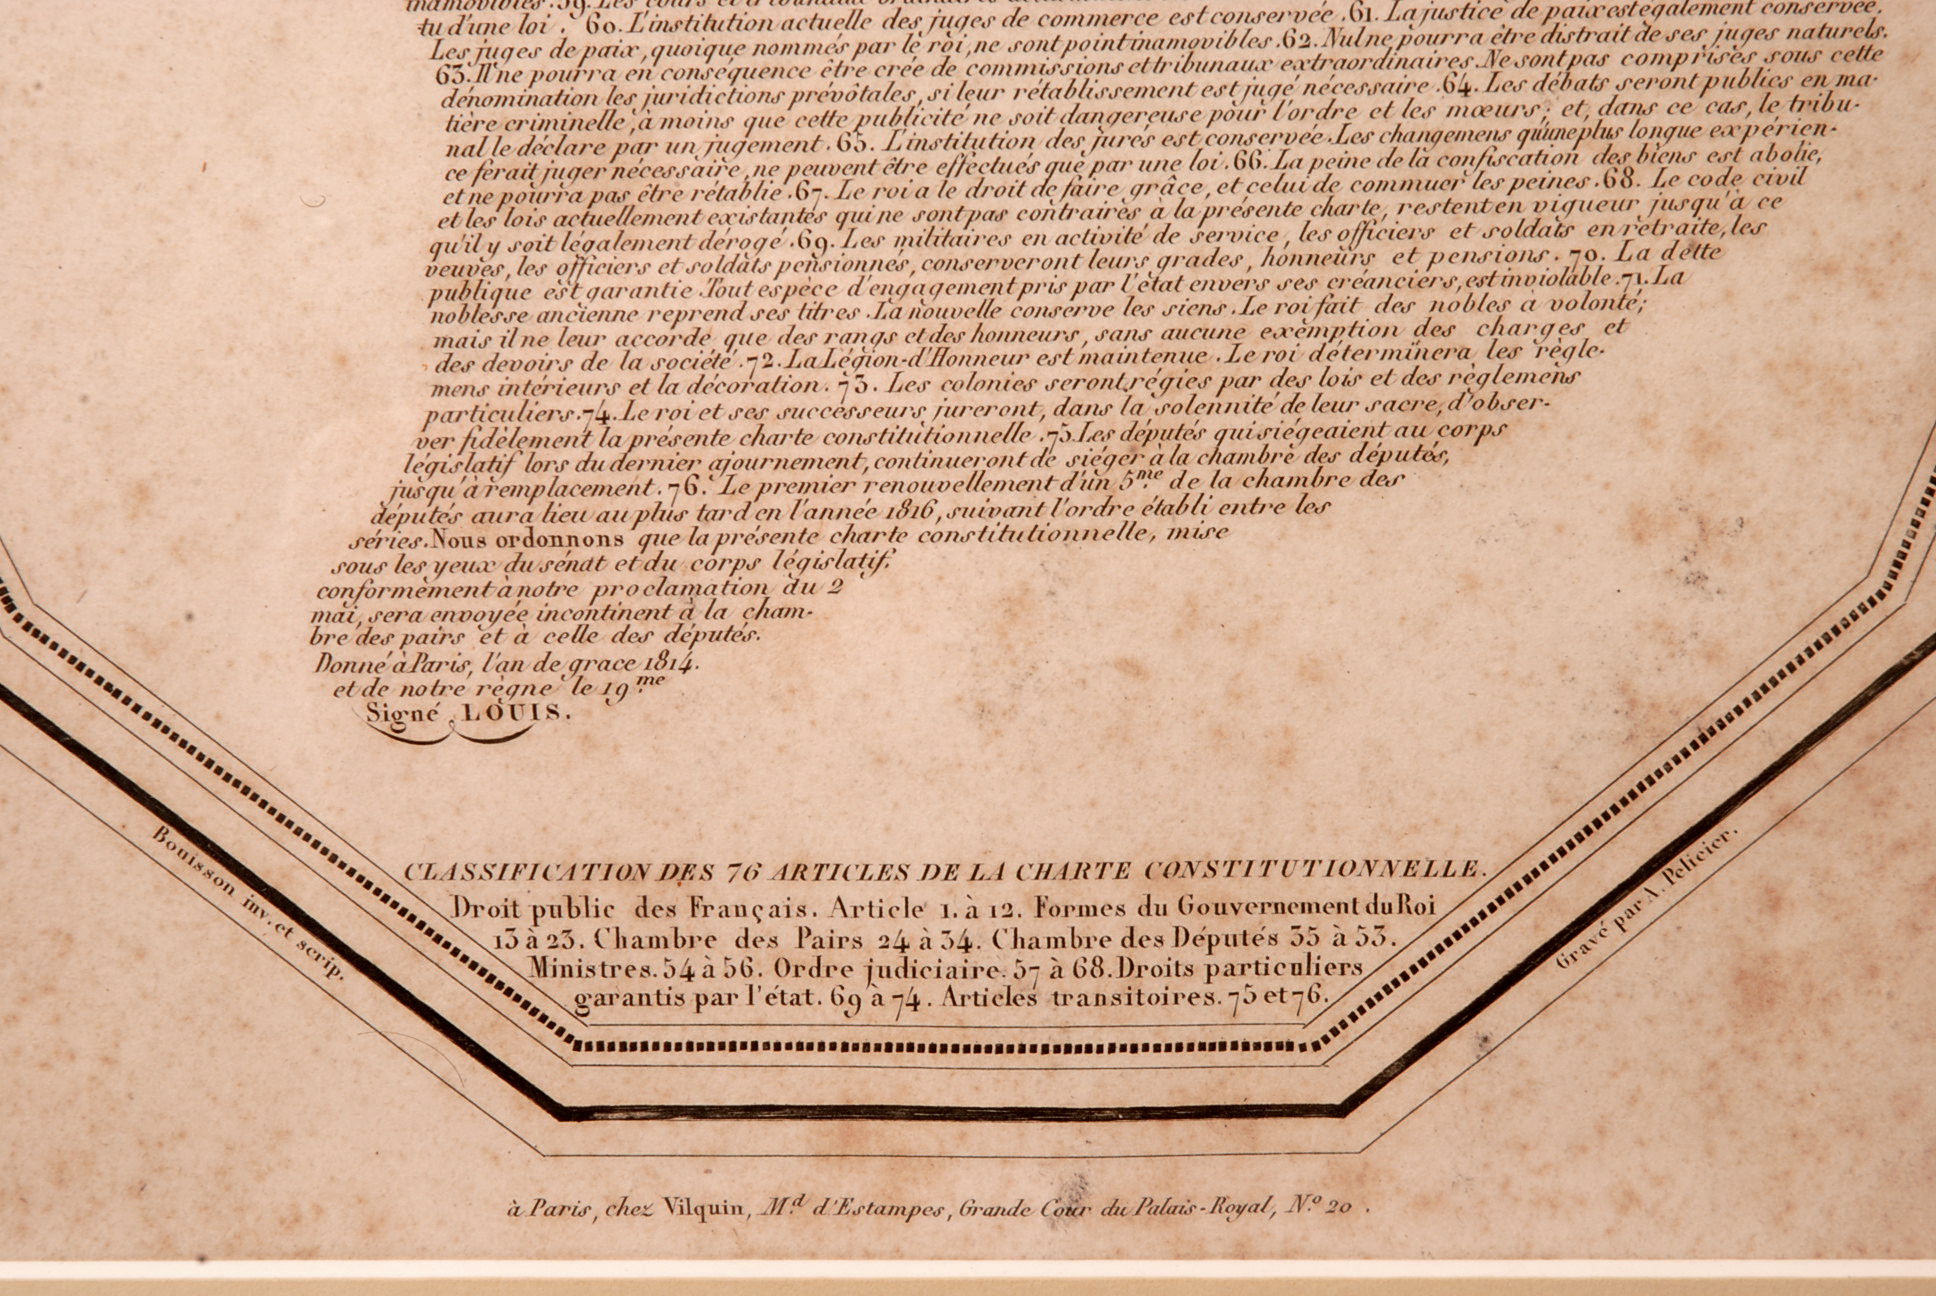 inamovibles .59. Les cours et tribunaux ordinaires
tu d'une loi . 60. L'institution actuelle des juges de commerce est conservée .61. La justice de paix est également conservée.
Les juges de paix, quoique nommés par le roi, ne sont point inamovibles .62. Nul ne pourra être distrait de ses juges naturels.
63. Il ne pourra en conséquence être crée de commissions et tribunaux extraordinaires. Ne sont pas comprises sous cette
dénomination les juridictions prévôtales, si leur rétablissement est jugé nécessaire .64. Les débats seront publics en ma-
tière criminelle, à moins que cette publicité ne soit dangereuse pour l'ordre et les mœurs; et, dans ce cas, le tribu-
nal le déclare par un jugement .65. L'institution des jurés est conservée. Les changemens qu'une plus longue expérien-
ce ferait juger nécessaire, ne peuvent être effectués que par une loi .66. La peine de la confiscation des biens est abolie,
et ne pourra pas être rétablie .67. Le roi a le droit de faire grâce, et celui de commuer les peines .68. Le code civil
et les lois actuellement existantes qui ne sont pas contraires à la présente charte, restent en vigueur jusqu'à ce
qu'il y soit légalement dérogé .69. Les militaires en activité de service, les officiers et soldats en retraite, les
veuves, les officiers et soldats pensionnés, conserveront leurs grades, honneurs et pensions. 70. La dette
publique est garantie. Tout espèce d'engagement pris par l'état envers ses créanciers, est inviolable .71. La
noblesse ancienne reprend ses titres. La nouvelle conserve les siens. Le roi fait des nobles à volonté;
mais il ne leur accorde que des rangs et des honneurs, sans aucune exemption des charges et
des devoirs de la société .72. La Légion-d'Honneur est maintenue. Le roi déterminera les règle-
mens intérieurs et la décoration. 73. Les colonies seront régies par des lois et des règlemens
particuliers. 74. Le roi et ses successeurs jureront, dans la solennité de leur sacre, d'obser-
ver fidèlement la présente charte constitutionnelle .75. Les députés qui siégeaient au corps
législatif lors du dernier ajournement, continueront de siéger à la chambre des députés,
jusqu'à remplacement. 76. Le premier renouvellement d'un 5me. de la chambre des
députés aura lieu au plus tard en l'année 1816, suivant l'ordre établi entre les
séries. Nous ordonnons que la présente charte constitutionnelle, mise
sous les yeux du sénat et du corps législatif,
conformément à notre proclamation du 2
mai, sera envoyée incontinent à la cham-
bre des pairs et à celle des députés.
Donné à Paris, l'an de grace 1814.
et de notre règne le 19.me
Signé LOUIS.
CLASSIFICATION DES 76 ARTICLES DE LA CHARTE CONSTITUTIONNELLE.
Droit public des Français. Article 1. à 12. Formes du Gouvernement du Roi
13 à 23. Chambre des Pairs 24 à 34. Chambre des Députés 35 à 53.
Ministres. 54 à 56. Ordre judiciaire. 57 à 68. Droits particuliers
garantis par l'état. 69 à 74. Articles transitoires. 75 et 76.
Bouisson inv. et scrip.
Gravé par A. Pelicier.
à Paris, chez Vilquin, M.d d'Estampes, Grande Cour du Palais-Royal, N.o 20 .